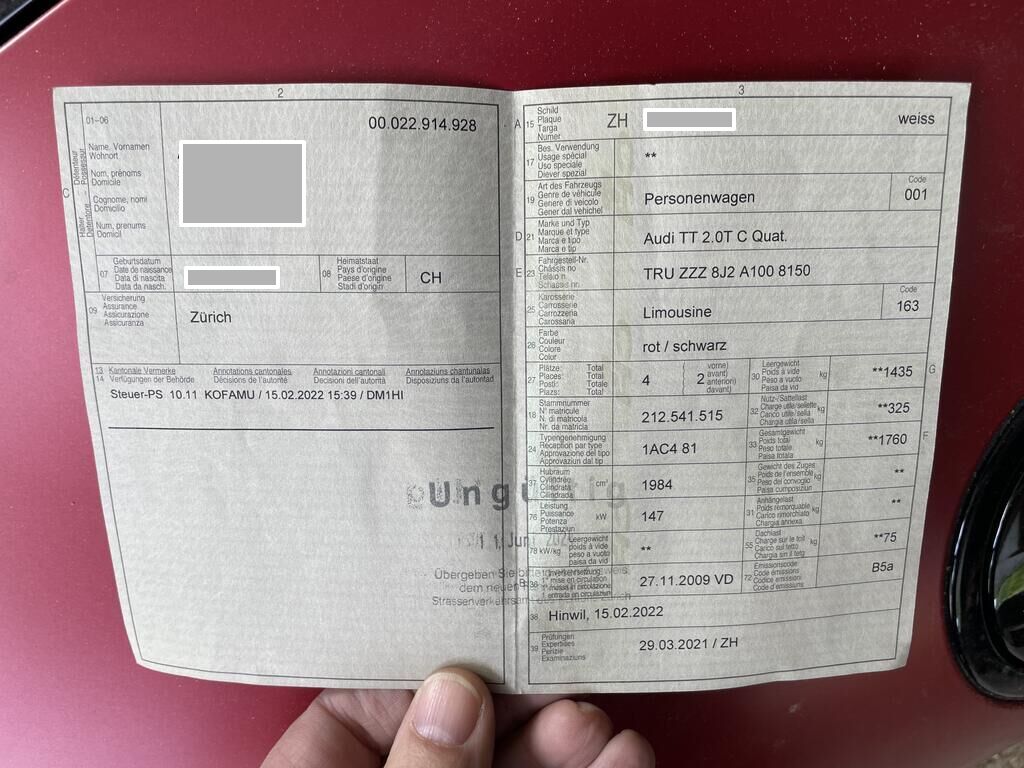 2
01–06
00.022.914.928
C
Halter Détenteur
Detentore Possessur
Name, Vornamen
Wohnort
Nom, prénoms
Domicile
Cognome, nomi
Domicilio
Num, prenums
Domicil
07
Geburtsdatum
Date de naissance
Data di nascita
Data da nasch.
08
Heimatstaat
Pays d'origine
Paese d'origine
Stadi d'origin
CH
09
Versicherung
Assurance
Assicurazione
Assicuranza
Zürich
13 Kantonale Vermerke Annotations cantonales Annotazioni cantonali Annotaziuns chantunalas
14 Verfügungen der Behörde Décisions de l'autorité Decisioni dell'autorità Disposiziuns da l'autoritad
Steuer-PS 10.11 KOFAMU / 15.02.2022 15:39 / DM1HI
Ungültig
11. Juni
Übergeben Sie bitte
dem neuen
Strassenverkehrsamt des Kantons Zürich
3
A
15
Schild
Plaque
Targa
Numer
ZH
weiss
17
Bes. Verwendung
Usage spécial
Uso speciale
Diever spezial
**
19
Art des Fahrzeugs
Genre de véhicule
Genere di veicolo
Gener dal vehichel
Personenwagen
Code
001
D
21
Marke und Typ
Marque et type
Marca e tipo
Marca e tip
Audi TT 2.0T C Quat.
E
23
Fahrgestell-Nr.
Châssis no
Telaio n.
Schassis nr.
TRU ZZZ 8J2 A100 8150
25
Karosserie
Carrosserie
Carrozzeria
Carossaria
Limousine
Code
163
26
Farbe
Couleur
Colore
Color
rot / schwarz
27
Plätze: Total
Places: Total
Posti: Totale
Plazs: Total
4
2
vorne)
avant)
anteriori)
davant)
30
Leergewicht
Poids à vide
Peso a vuoto
Paisa da vid
kg
**1435
G
18
Stammnummer
N° matricule
N. di matricola
Nr. da matricla
212.541.515
32
Nutz-/Sattellast
Charge utile/sellette
Carico utile/sella
Chargia utila/sella
kg
**325
24
Typengenehmigung
Réception par type
Approvazione del tipo
Approvaziun dal tip
1AC4 81
33
Gesamtgewicht
Poids total
Peso totale
Paisa totala
kg
**1760
F
37
Hubraum
Cylindrée
Cilindrata
Cilindrada
cm³
1984
35
Gewicht des Zuges
Poids de l'ensemble
Peso del convoglio
Paisa cumposiziun
kg
**
76
Leistung
Puissance
Potenza
Prestaziun
kW
147
31
Anhängelast
Poids remorquable
Carico rimorchiato
Chargia annexa
kg
**
78 kW/kg
Leergewicht
poids à vide
peso a vuoto
paisa da vid
**
55
Dachlast
Charge sur le toit
Carico sul tetto
Chargia sin il tetg
kg
**75
B
36
1. Inverkehrsetzung
1re mise en circulation
1. messa in circolazione
1. entrada en circulaziun
27.11.2009 VD
72
Emissionscode
Code émissions
Codice emissioni
Code d'emissiuns
B5a
38
Hinwil, 15.02.2022
39
Prüfungen
Expertises
Perizie
Examinaziuns
29.03.2021 / ZH